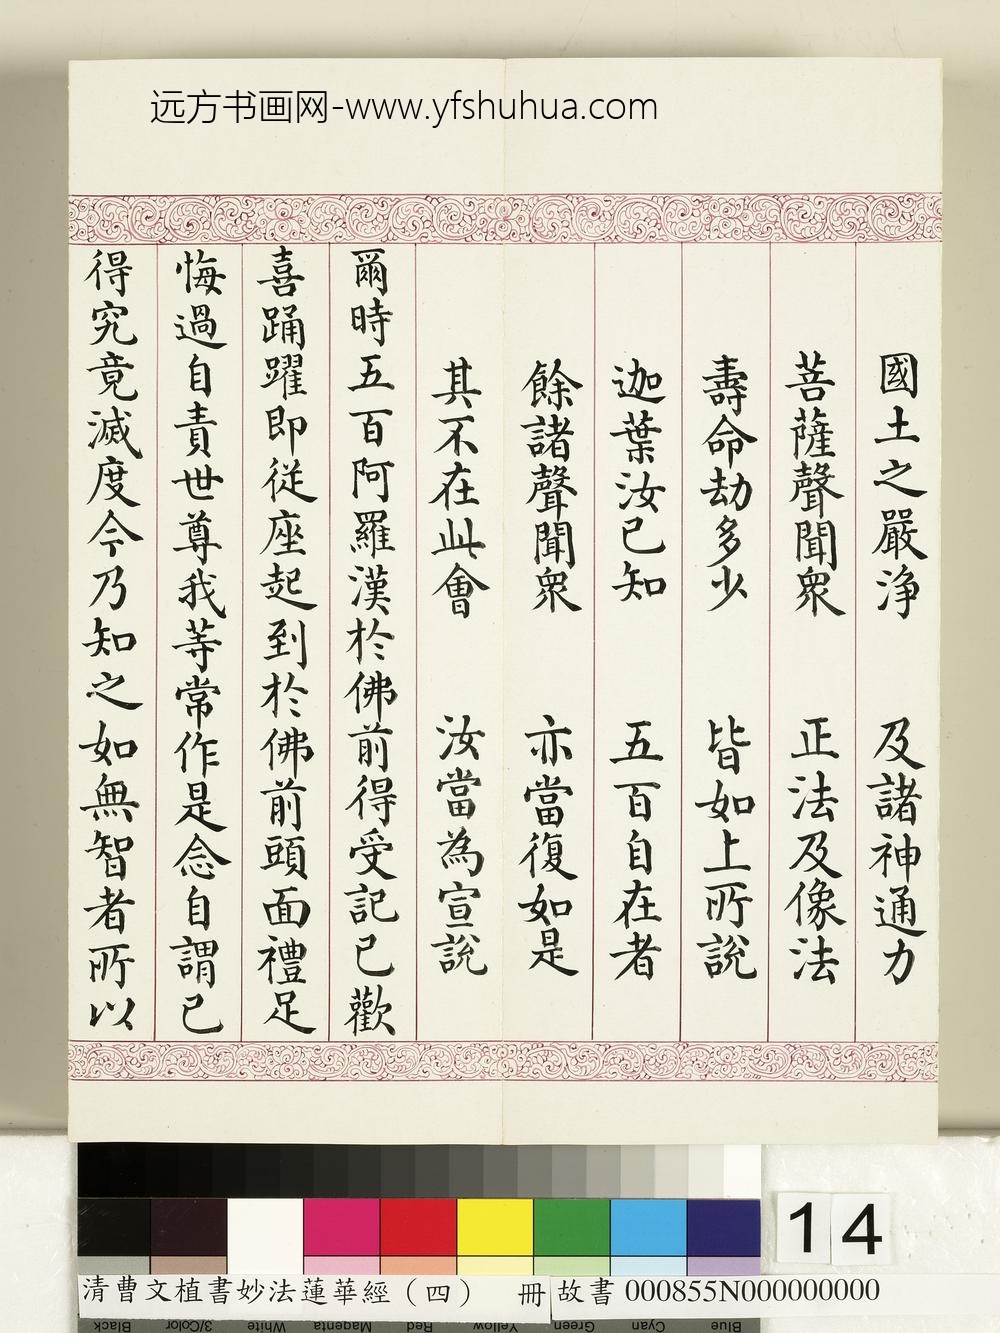 远方书画网-www.yfshuhua.com
國土之嚴淨 及諸神通力
菩薩聲聞眾 正法及像法
壽命劫多少 皆如上所說
迦葉汝已知 五百自在者
餘諸聲聞眾 亦當復如是
其不在此會 汝當為宣說
爾時五百阿羅漢於佛前得受記已歡
喜踊躍即從座起到於佛前頭面禮足
悔過自責世尊我等常作是念自謂已
得究竟滅度今乃知之如無智者所以
14
清曹文植書妙法蓮華經（四） 冊 故書 000855N000000000
Black 3/Color White Magenta Red Yellow Green Cyan Blue